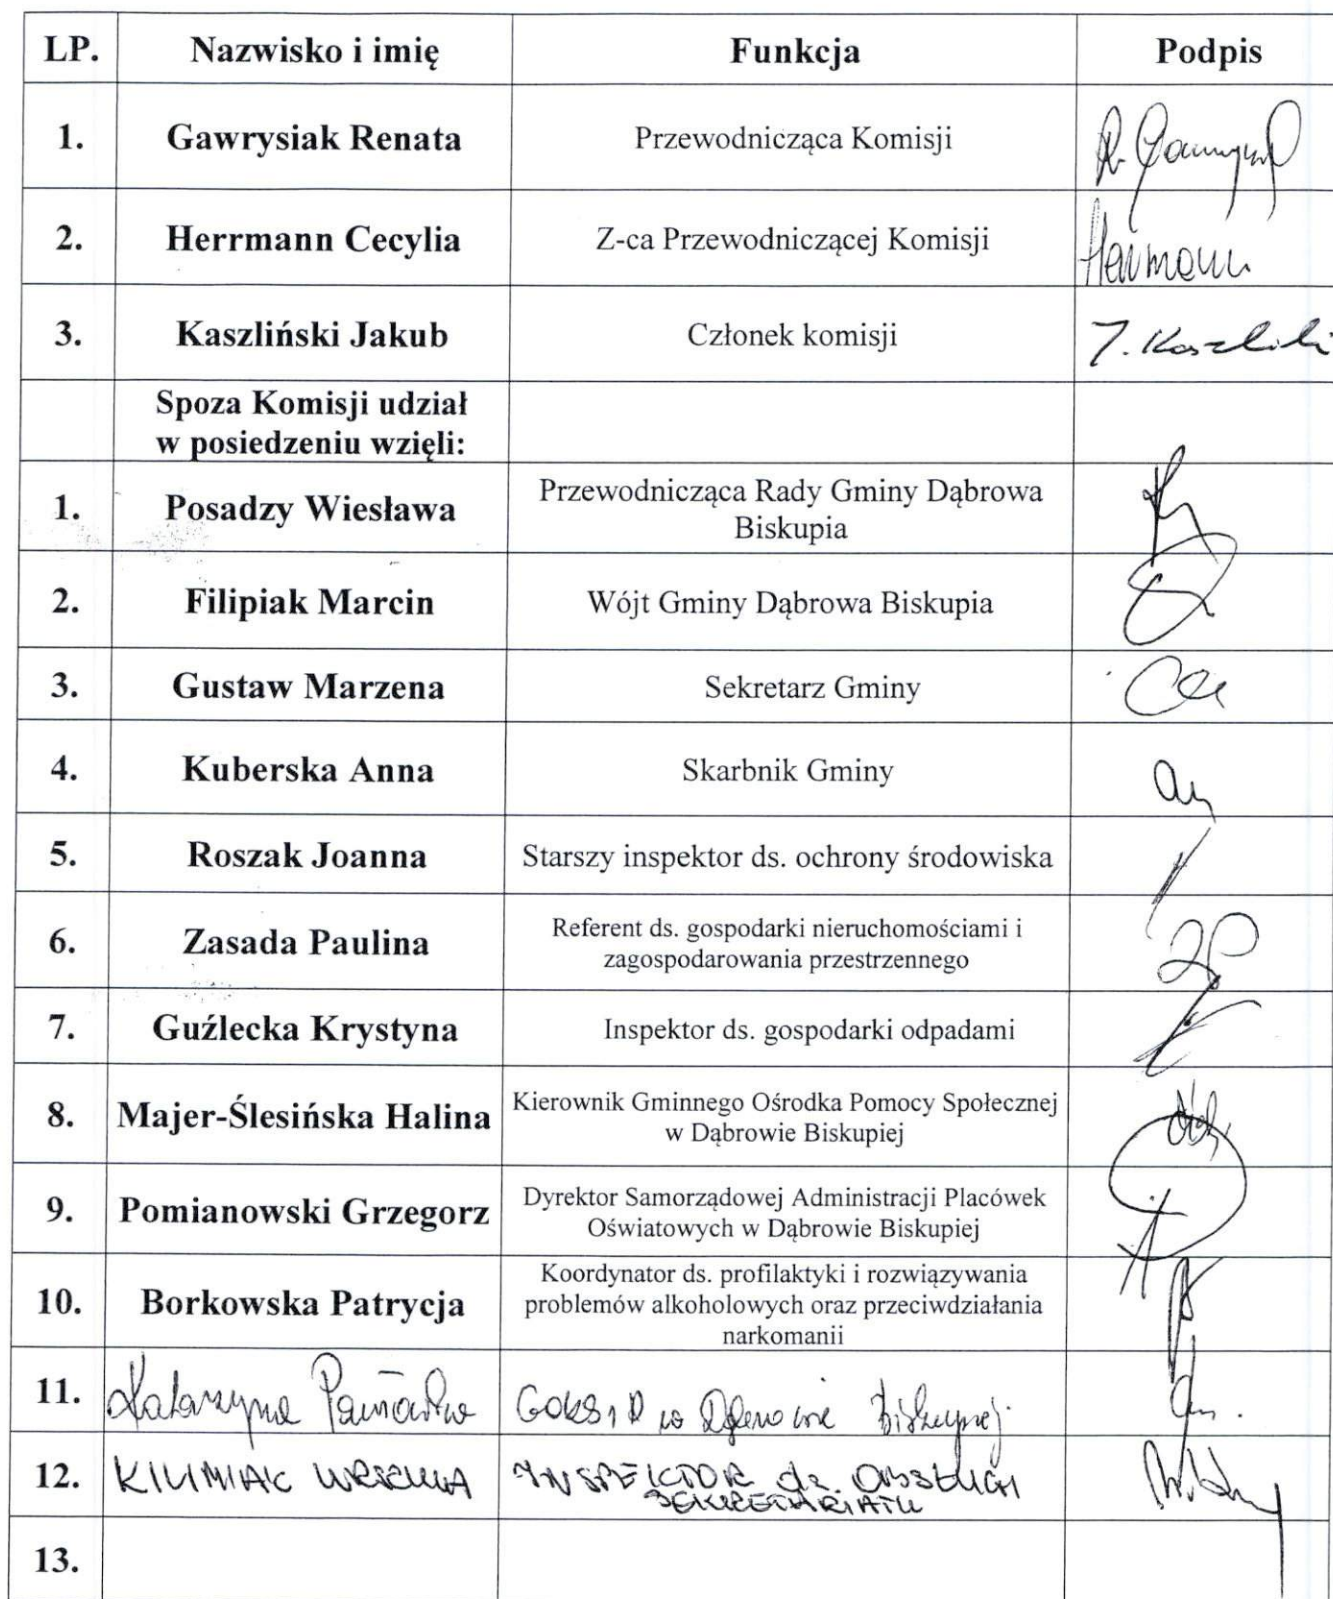 LP. Nazwisko i imię Funkcja Podpis
1. Gawrysiak Renata Przewodnicząca Komisji
2. Herrmann Cecylia Z-ca Przewodniczącej Komisji
3. Kaszliński Jakub Członek komisji
Spoza Komisji udział
w posiedzeniu wzięli:
1. Posadzy Wiesława Przewodnicząca Rady Gminy Dąbrowa
Biskupia
2. Filipiak Marcin Wójt Gminy Dąbrowa Biskupia
3. Gustaw Marzena Sekretarz Gminy
4. Kuberska Anna Skarbnik Gminy
5. Roszak Joanna Starszy inspektor ds. ochrony środowiska
6. Zasada Paulina Referent ds. gospodarki nieruchomościami i
zagospodarowania przestrzennego
7. Guźlecka Krystyna Inspektor ds. gospodarki odpadami
8. Majer-Ślesińska Halina Kierownik Gminnego Ośrodka Pomocy Społecznej
w Dąbrowie Biskupiej
9. Pomianowski Grzegorz Dyrektor Samorządowej Administracji Placówek
Oświatowych w Dąbrowie Biskupiej
10. Borkowska Patrycja Koordynator ds. profilaktyki i rozwiązywania
problemów alkoholowych oraz przeciwdziałania
narkomanii
11. Katarzyna w Biskupiej
12. KILIMIAK URSZULA INSPEKTOR ds. OBSŁUGI
SEKRETARIATU
13.